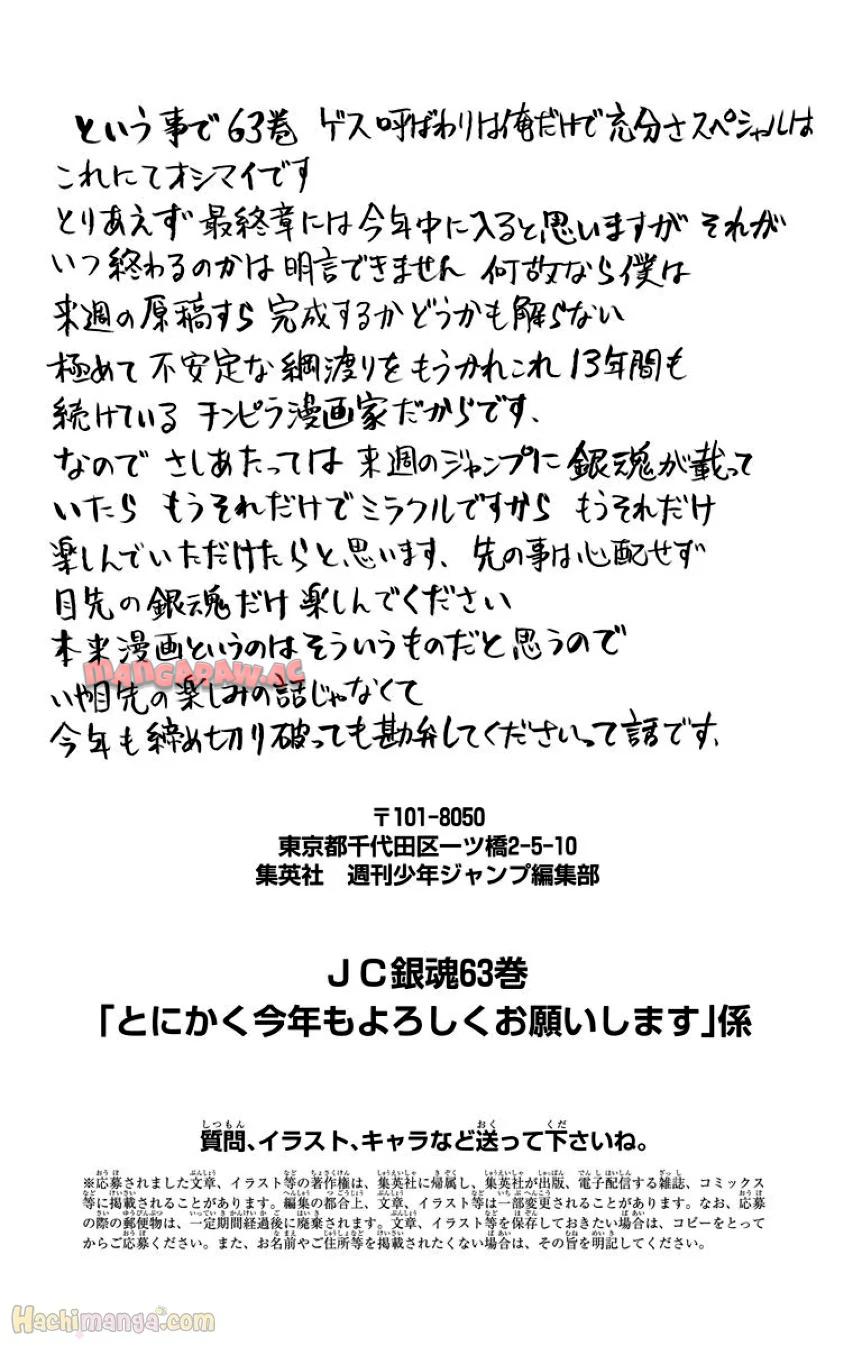 という事で63巻 ゲス呼ばわりは俺だけで充分さスペシャルは
これにてオシマイです
とりあえず最終章には今年中に入ると思いますが それが
いつ終わるのかは明言できません 何故なら僕は
来週の原稿すら完成するかどうかも解らない
極めて不安定な綱渡りをもうかれこれ13年間も
続けている チンピラ漫画家だからです、
なので さしあたっては 来週のジャンプに銀魂が載って
いたら もうそれだけでミラクルですから もうそれだけ
楽しんでいただけたらと思います、先の事は心配せず
目先の銀魂だけ楽しんでください
本来漫画というのはそういうものだと思うので
MANGARAW.AC
いや目先の楽しみの話じゃなくて
今年も締め切り破っても勘弁してくださいって話です、
〒101-8050
東京都千代田区一ツ橋2-5-10
集英社 週刊少年ジャンプ編集部
JC銀魂63巻
「とにかく今年もよろしくお願いします」係
質問、イラスト、キャラなど送って下さいね。
※応募されました文章、イラスト等の著作権は、集英社に帰属し、集英社が出版、電子配信する雑誌、コミックス
等に掲載されることがあります。編集の都合上、文章、イラスト等は一部変更されることがあります。なお、応募
の際の郵便物は、一定期間経過後に廃棄されます。文章、イラスト等を保存しておきたい場合は、コピーをとって
からご応募ください。また、お名前やご住所等を掲載されたくない場合は、その旨を明記してください。
Hachimanga.com